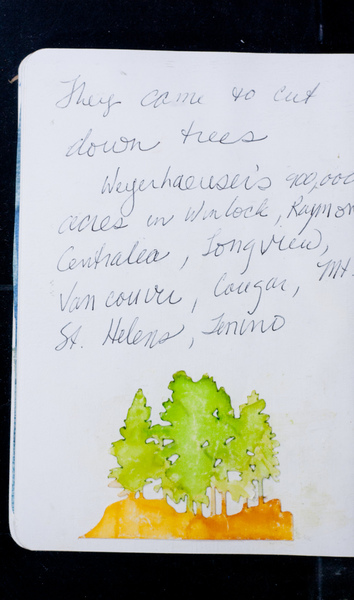 They came to cut
down trees
Weyerhaeuser's 900,000
acres in Winlock, Raymon
Centralea, Longview,
Vancouver, Cougar, Mt.
St. Helens, Tenino